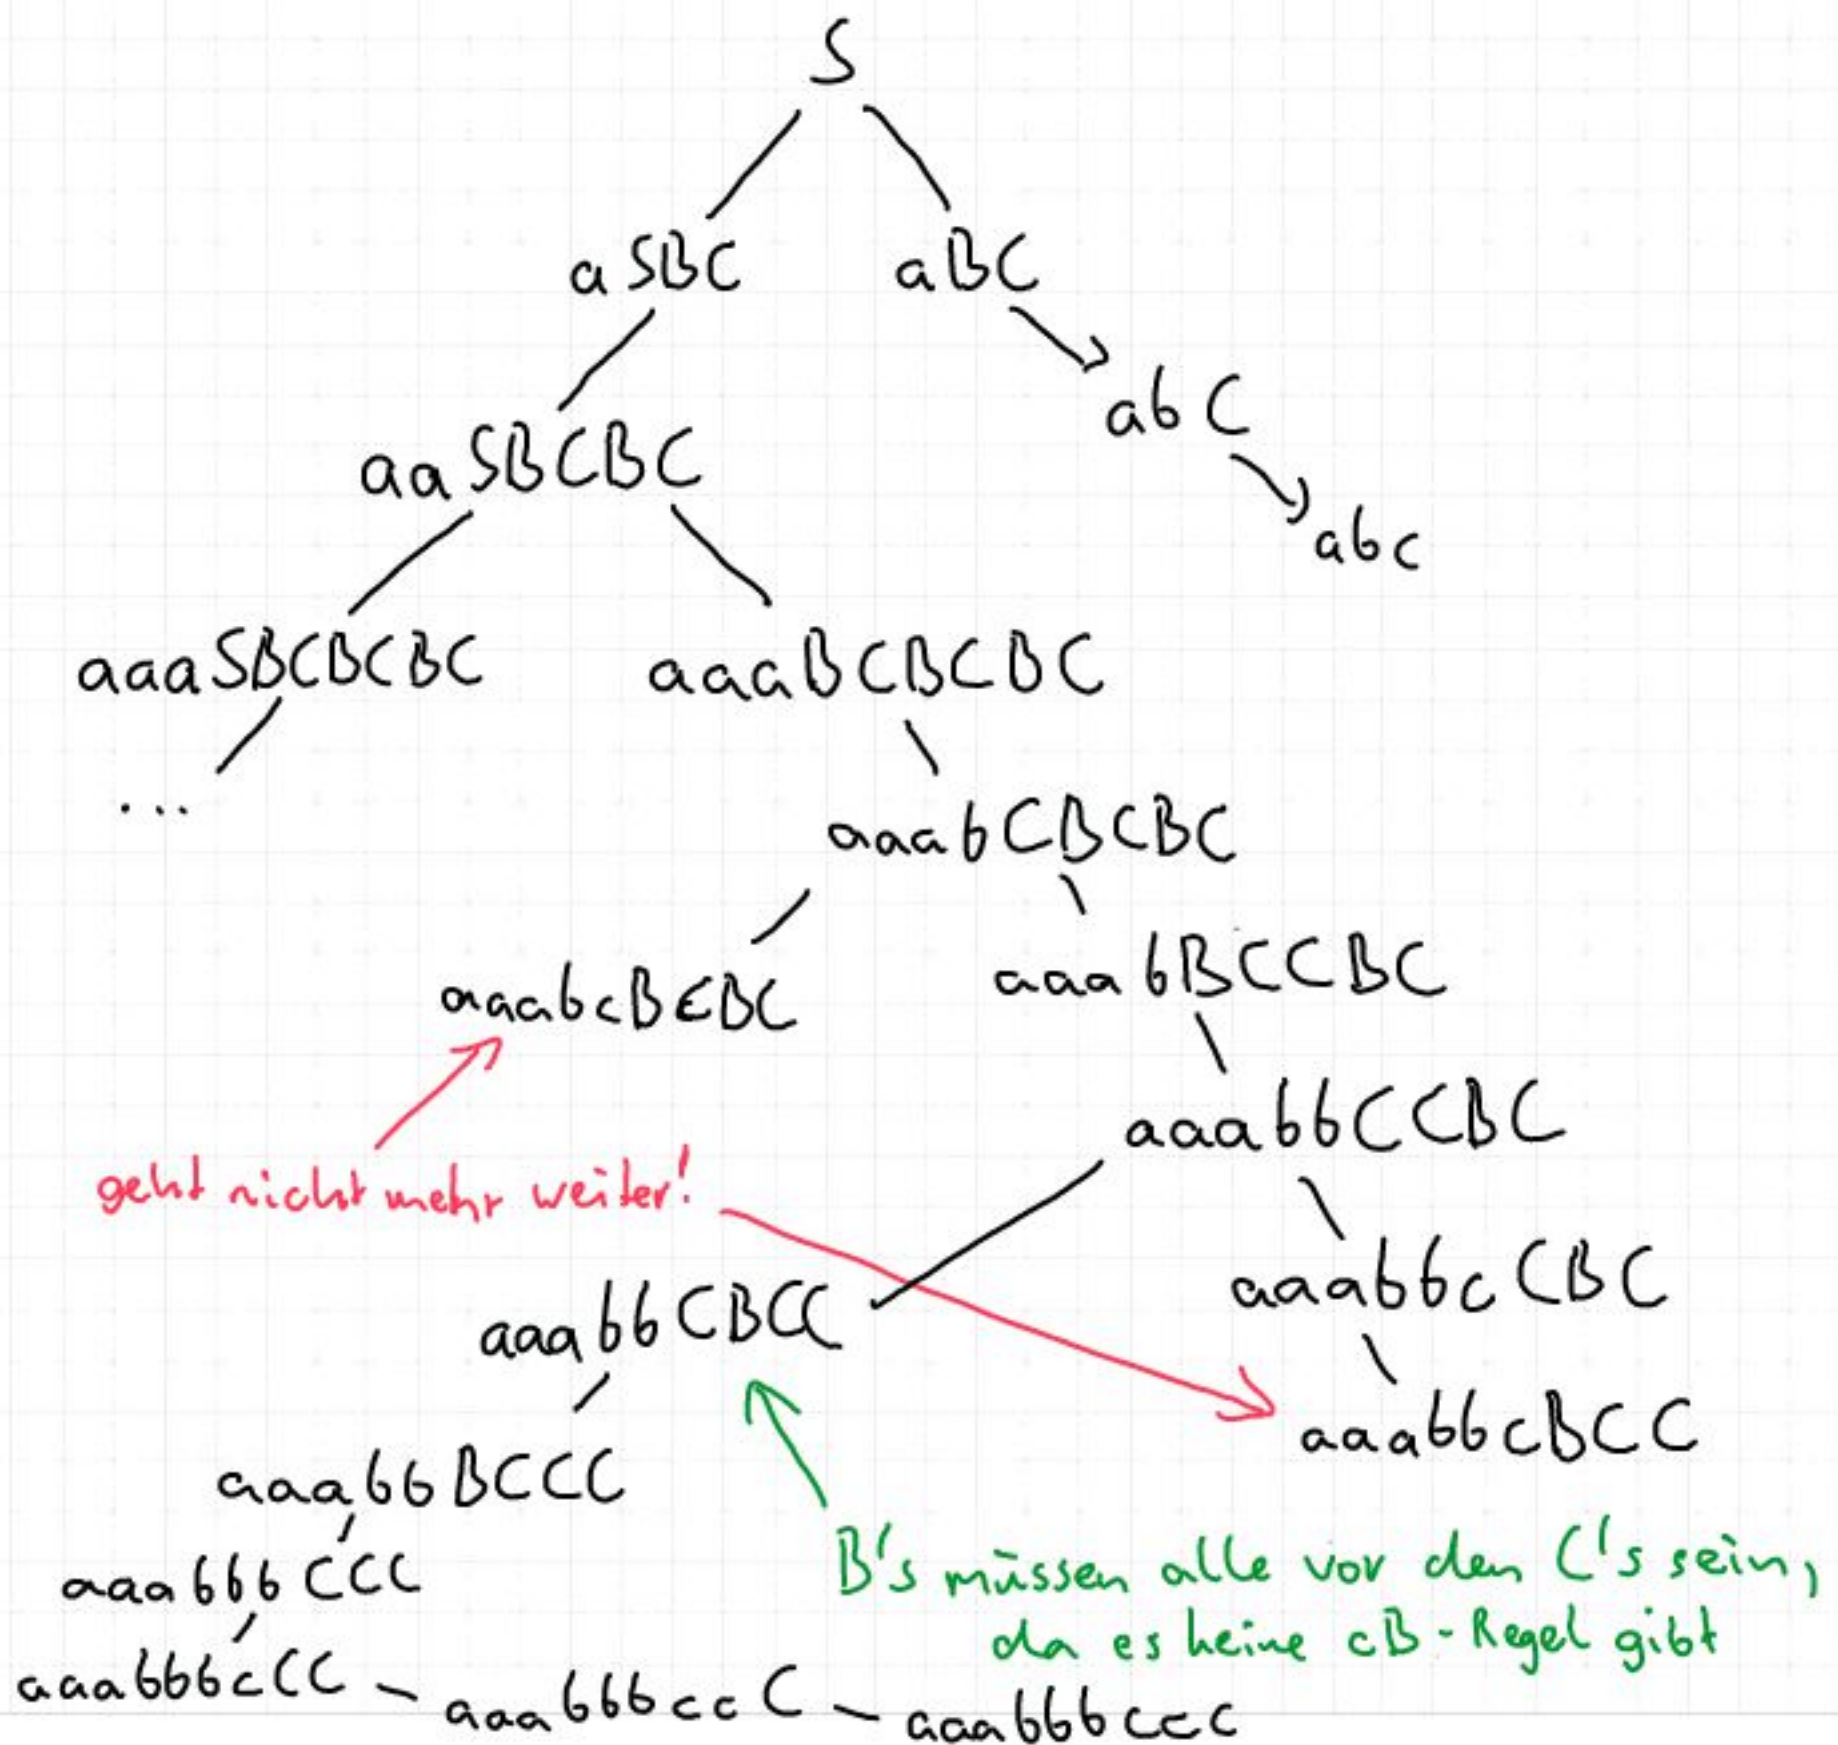 S
aSBC aBC
abC
aaSBCBC
abc
aaaSBCBCBC aaaBCBCBC
...
aaabCBCBC
aaabcBCBC aaabBCCBC
aaabbCCBC
geht nicht mehr weiter!
aaabbcCBC
aaabbCBCC
aaabbcBCC
aaabbBCCC
B's müssen alle vor den C's sein,
aaabbbCCC
da es keine cB-Regel gibt
aaabbbcCC - aaabbbccC - aaabbbccc